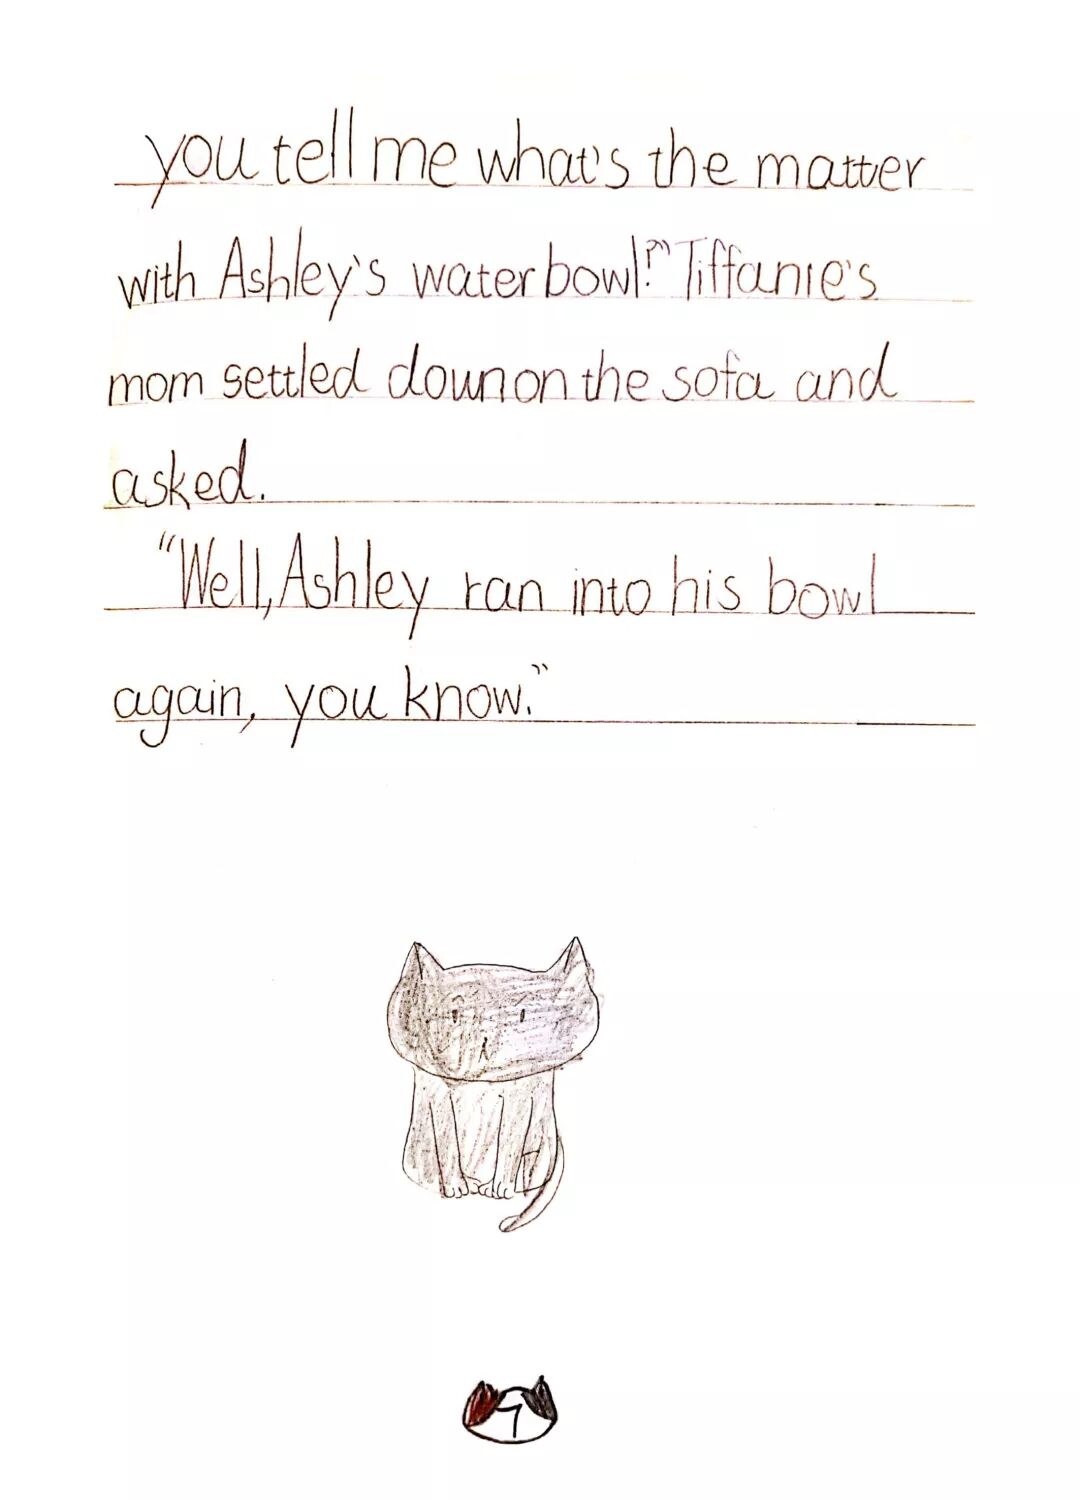 you tell me what's the matter
with Ashley's water bowl?" Tiffanie's
mom settled down on the sofa and
asked.
"Well, Ashley ran into his bowl
again, you know."
7